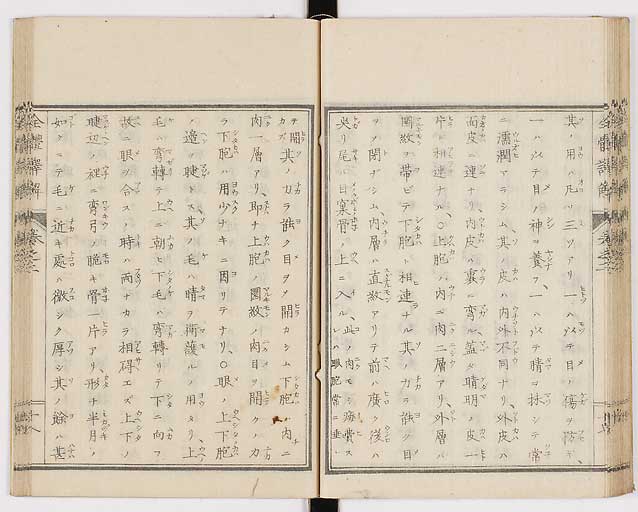 其ノ用ハ凡ソ三ツアリ一ハ以テ目ノ傷ヲ防ギ、
一ハ以テ目ノ神ヲ養フ一ハ以テ睛ヲ抹シテ常
ニ濡潤アラシム、其ノ皮ハ内外不同ナリ、外皮ハ
面皮ニ連ナリ、内皮ハ裏ニ弯ル、蓋タ睛明ノ皮ー
片ト相連ナル、〇上胞ハ内ニ肉二層アリ、外層ハ
圓紋ヲ帯ビテ下胞ト相連ナル其ノ力ヲ能ク目
ヲメ閉ヂシム、内層ハ直紋アリテ前ハ廣ク後ハ
尖リ尾ハ目窠骨ノ上ニ入ル、此ノ肉モシ
レハ眼胞常ニ垂
テ開
カズ其ノ力ヲ能ク目ヲメ開カシム下胞ハ内ニ
肉一層アリ、即ナ上胞ノ圓紋ノ肉目ヲ開クノカ
ラ下胞ハ用少ナキニ因リテナリ、〇眼ノ上下胞
ノ邉ヲ睫トス其ノ毛ハ睛ヲ衛護ルノ用タリ上
毛ハ弯轉テ上ニ朝ヒ下毛ハ弯轉リテ下ニ向フ
故ニ眼ヲ合スノ時ハ両ナカラ相碍エズ上下ノ
睫辺ノ裡ニ弯弓ノ脆キ骨一片アリ、形チ半月ノ
如クニテ毛ニ近キ處ハ微シク厚シ其ノ餘ハ甚
全體